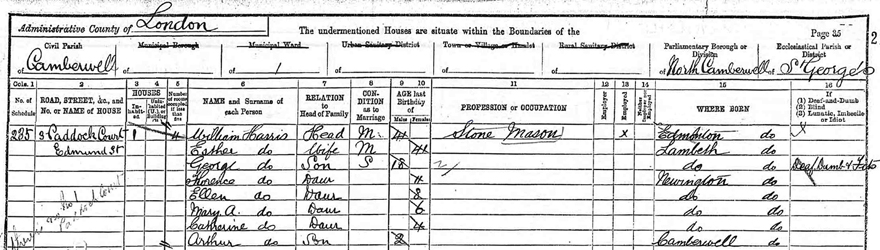 Administrative County of London
The undermentioned Houses are situate within the Boundaries of the
Page 35
2
Civil Parish
Municipal Borough
Municipal Ward
Urban Sanitary District
Town or Village or Hamlet
Rural Sanitary District
Parliamentary Borough or Division
Ecclesiastical Parish or District
of Camberwell of of 1 of of of of North Camberwell of St George's
Cols. 1 2 3 4 5 6 7 8 9 10 11 12 13 14 15 16
No. of Schedule
ROAD, STREET, &c., and No. or NAME of HOUSE
HOUSES
NAME and Surname of each Person
RELATION to Head of Family
CONDITION as to Marriage
AGE last Birthday of
Males Females
PROFESSION or OCCUPATION
Employer
Employed
WHERE BORN
(1) Deaf-and-Dumb
(2) Blind
(3) Lunatic, Imbecile or Idiot
235 3 Paddock Court 1 4 William Harris Head M Stone Mason x Edmonton do
Edmund St Esther do Wife M 41 Lambeth do
George do Son S 18 do do Deaf Dumb & Fits
Florence do Daur 11 Newington do
Ellen do Daur 8 do do
Mary A. do Daur 6 do do
Catherine do Daur 4 do do
Arthur do Son 2 Camberwell do